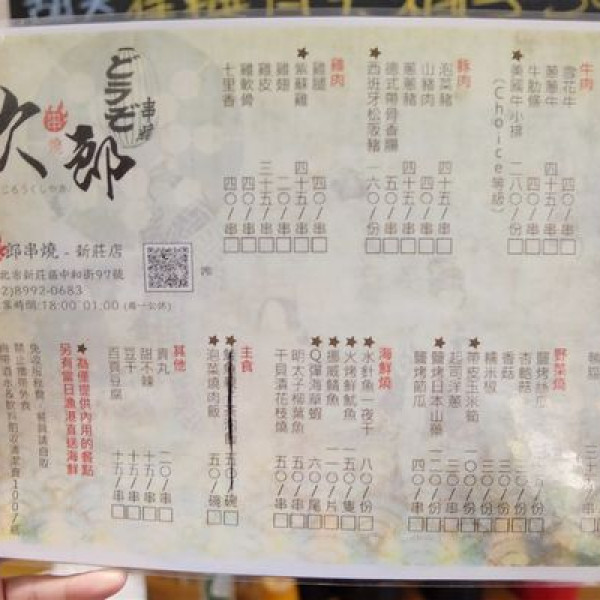 牛肉
雪花牛 四〇/串
蔥蔥牛 四十五/串
牛肋條 五〇/串
★美國牛小排 二八〇/份
(Choice等級)
豚肉
泡菜豬 四十五/串
山豬肉 四十五/串
德式帶骨香腸 五〇/串
★西班牙松阪豬 一六〇/份
雞肉
雞腿 四〇/串
★紫蘇雞 四〇/串
雞翅 二〇/串
雞皮 三十五/串
雞軟骨 四〇/串
七里香 四〇/串
どうぞ
串燒
次郎
串燒
じろうくしやき
郎串燒-新莊店
北市新莊區中和街97號
2)8992-0683
業時間:18:00~01:00 (周一公休)
野菜燒
鹽烤絲瓜
杏鮑菇
香菇
糯米椒
帶皮玉米筍
起司洋蔥
★鹽烤日本山藥
鹽烤筊瓜 四〇/串
海鮮燒
★水針魚一夜干 八〇/份
★火烤鮮魷魚 一五〇/隻
★挪威鯖魚 一一〇/片
★Q彈海草蝦 六〇/尾
明太子柳葉魚 五〇/串
干貝漬花枝燒 五〇/串
主食
五〇/碗
★泡菜燒肉飯 五〇/碗
其他
貢丸 二〇/串
甜不辣 十五/串
豆干 十五/串
百頁豆腐 十五/串
★為僅提供內用的餐點
另有當日漁港直送海鮮
免收服務費,餐具請自取
禁止攜帶外食
自帶酒水&飲料酌收清潔費100/瓶